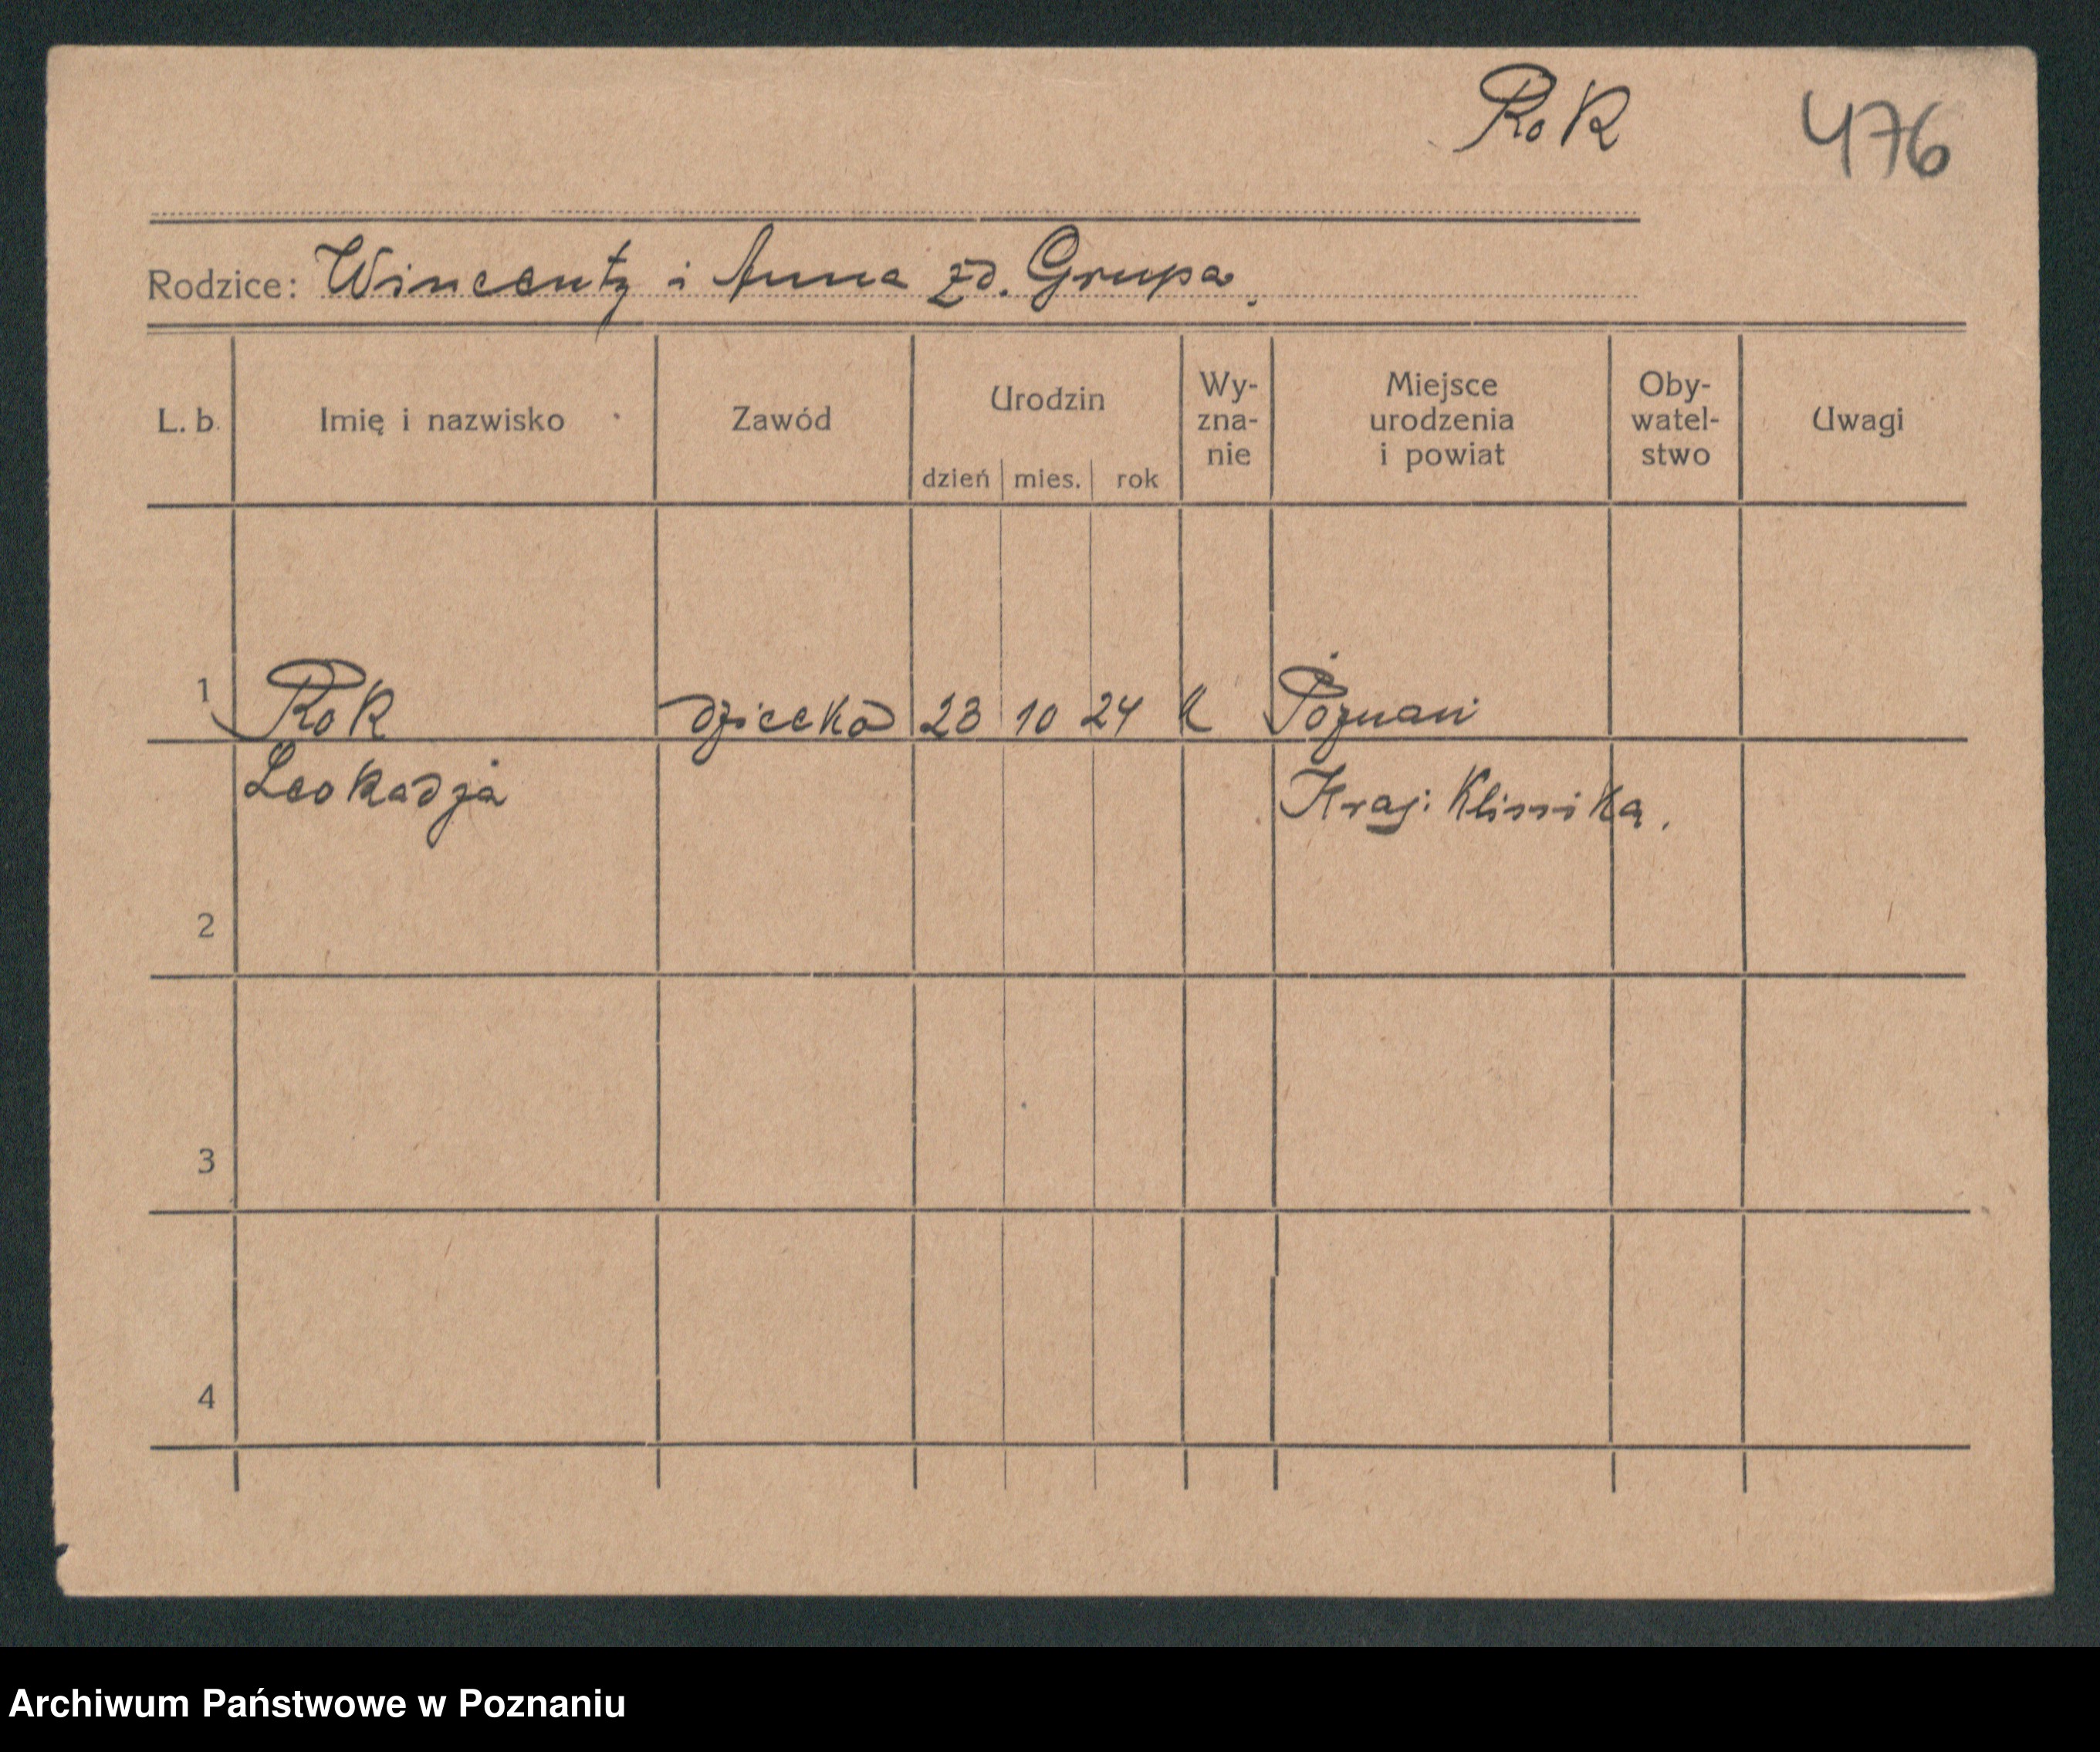 Rok 476
Rodzice: Wincenty i Anna zd. Grupa.
L. b. Imię i nazwisko Zawód Urodzin Wy- Miejsce Oby- Uwagi
zna- urodzenia watel-
nie i powiat stwo
dzień mies. rok
1 Rok dziecko 23 10 24 K Poznań
Leokadja Kraj. Klinika.
2
3
4
Archiwum Państwowe w Poznaniu